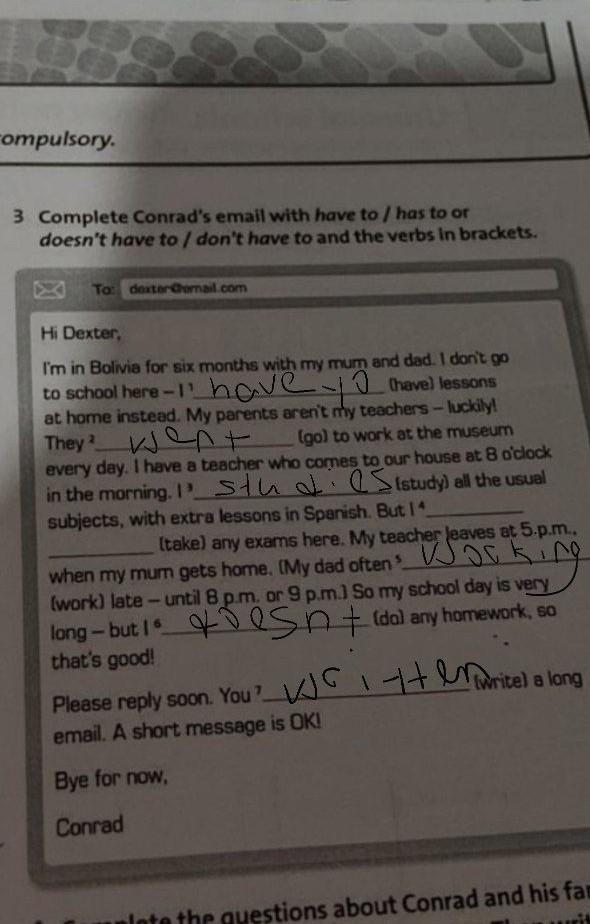 compulsory.
3 Complete Conrad's email with have to / has to or
doesn't have to / don't have to and the verbs in brackets.
To: dexter@email.com
Hi Dexter,
I'm in Bolivia for six months with my mum and dad. I don't go
to school here – I ¹ have to (have) lessons
at home instead. My parents aren't my teachers – luckily!
They ² went (go) to work at the museum
every day. I have a teacher who comes to our house at 8 o'clock
in the morning. I ³ studies (study) all the usual
subjects, with extra lessons in Spanish. But I ⁴
(take) any exams here. My teacher leaves at 5 p.m.,
when my mum gets home. (My dad often ⁵ working
(work) late – until 8 p.m. or 9 p.m.) So my school day is very
long – but I ⁶ doesnt (do) any homework, so
that's good!
Please reply soon. You ⁷ written (write) a long
email. A short message is OK!
Bye for now,
Conrad
the questions about Conrad and his